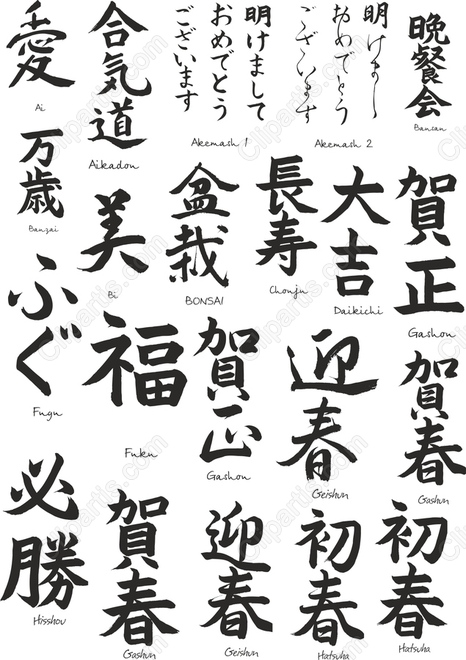 愛
Ai
合気道
Aikadou
明けまして
おめでとう
ございます
Akemash 1
明けまして
おめでとう
ございます
Akemash 2
晩餐会
Bansan
万歳
Banzai
美
Bi
盆栽
BONSAI
長寿
Chonju
大吉
Daikichi
賀正
Gashou
ふぐ
Fugu
福
Fuku
賀正
Gashou
迎春
Geishun
賀春
Gashun
必勝
Hisshou
賀春
Gashun
迎春
Geishun
初春
Hatsuha
初春
Hatsuha
Clipartis.com